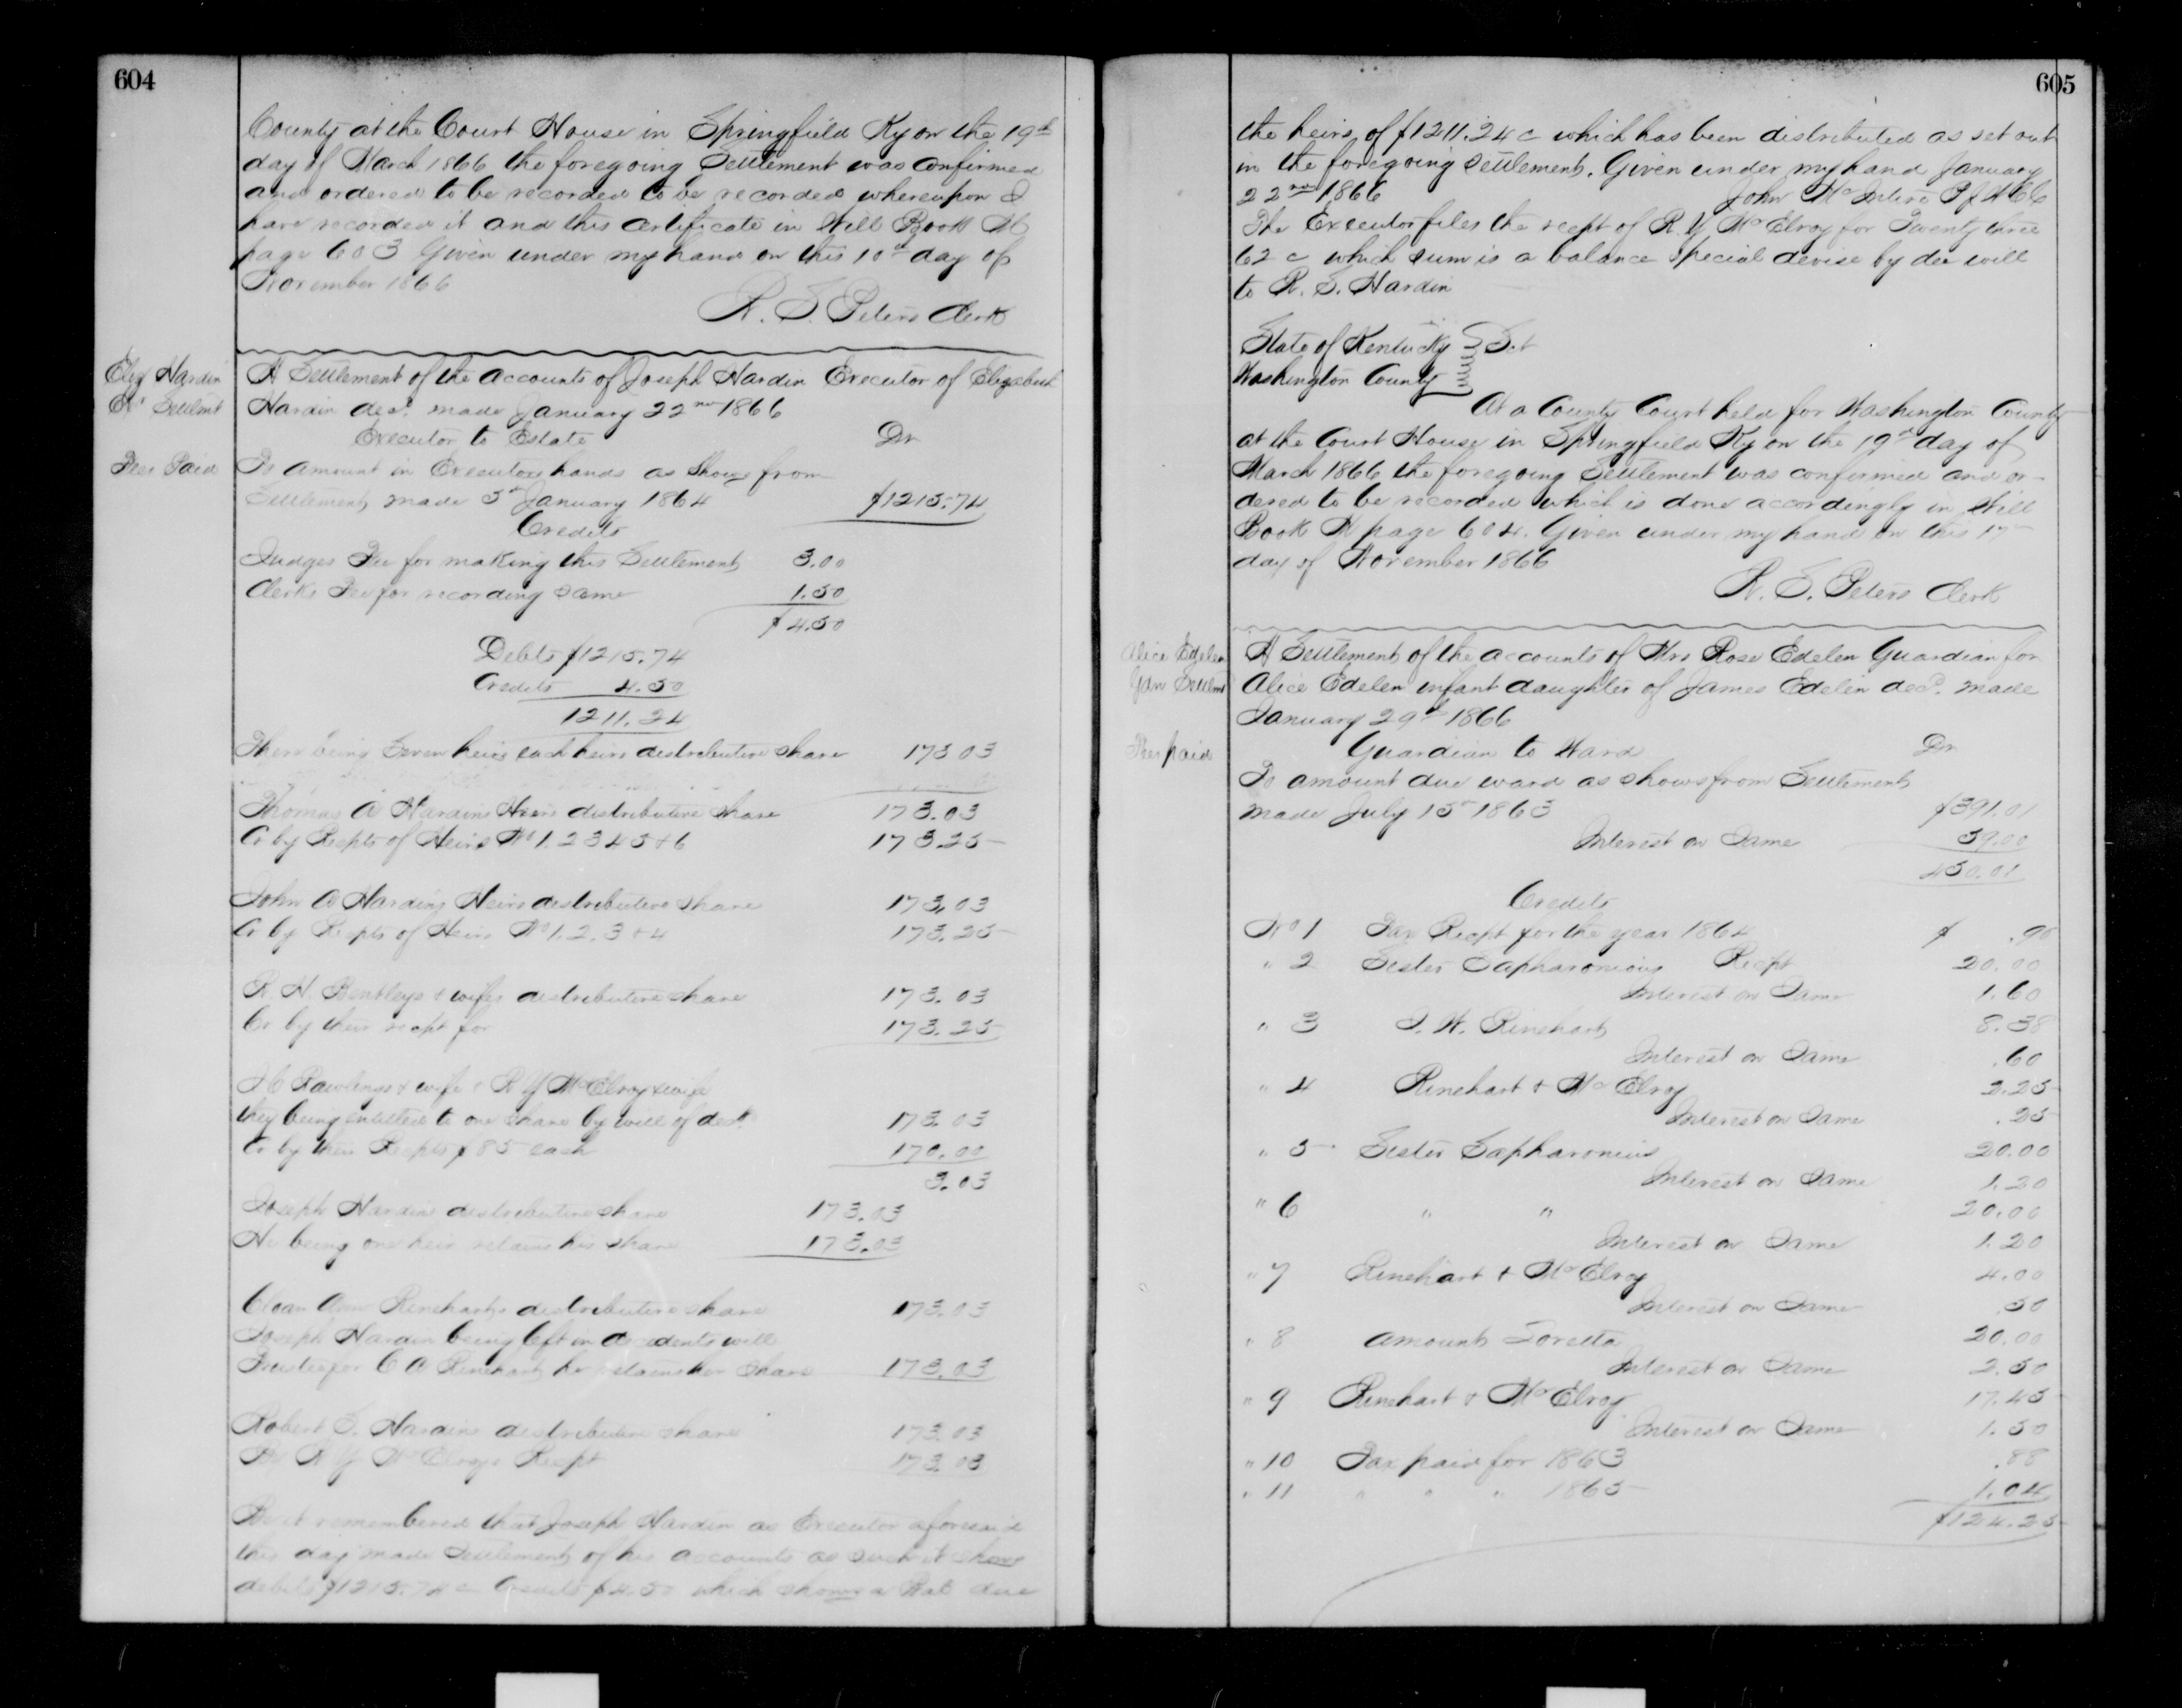 604
County at the Court House in Springfield Ky on the 19th
day of March 1866 the foregoing Settlement was confirmed
and ordered to be recorded to be recorded whereupon I
have recorded it and this certificate in Will Book
page 603 Given under my hand on this 10th day of
November 1866
R. S. Peters Clerk
Eliz Hardin
Exr Settlmt
A Settlement of the accounts of Joseph Hardin Executor of Elizabeth
Hardin decd. made January 22nd 1866
Executor to Estate Dr
Fees Paid
To amount in Executors hands as shows from
Settlement made 5th January 1864 $1215.74
Credits
Judges Fee for making this Settlement 3.00
Clerks Fee for recording same 1.50
$4.50
Debts $1215.74
Credits 4.50
1211.24
There being Seven heirs each heirs distributive share 173 03
Thomas A Hardins Heirs distributive share 173.03
Cr by Recpts of Heirs No 1. 2 3 4 5 & 6 173.25
John A Hardins Heirs distributive share 173.03
Cr by Recpts of Heirs No 1. 2. 3 & 4 173.25
R. H. Bentleys & wifes distributive share 173.03
Cr by their recpt for 173.25
Rawlings & wife & R Y McElroy & wife
they being entitled to one share by will of decd. 173.03
Cr by their Recpts $85 each 170.00
3.03
Joseph Hardins distributive share 173.03
He being one heir retains his share 173.03
Cloan Ann Rineharts distributive share 173.03
Joseph Hardin being left in decedents will
Trustee for C A Rinehart he retains her share 173.03
Robert S. Hardins distributive share 173.03
R Y McElroys Recpt 173.03
Be it remembered that Joseph Hardin as Executor aforesaid
this day made Settlement of his accounts as such it shows
debits $1215.74 c Credits $4.50 which shows a Bal due
605
the heirs of $1211.24 c which has been distributed as set out
in the foregoing settlement. Given under my hand January
22nd 1866 John McIntire P J W C C
The Executor files the recpt of R. Y McElroy for Twenty three
62 c which sum is a balance special devise by dec will
to R. S. Hardin
State of Kentucky
Washington County Sct
At a County Court held for Washington County
at the Court House in Springfield Ky on the 19th day of
March 1866 the foregoing Settlement was confirmed and or-
dered to be recorded which is done accordingly in Will
Book page 604. Given under my hand on this 17
day of November 1866
R. S. Peters Clerk
Alice Edelen
Gdn Settlmt
A Settlement of the accounts of Mrs Rose Edelen Guardian for
Alice Edelen infant daughter of James Edelen decd. made
January 29th 1866
Guardian to Ward Dr
Fees paid
To amount due ward as shows from Settlement
made July 15th 1863 $391.01
Interest on Same 59.00
450.01
Credits
No 1 Tax Recpt for the year 1864 $ .90
" 2 Sister Sapharonious Recpt 20.00
Interest on Same 1.60
" 3 J. W. Rinehart 8.38
Interest on Same .60
" 4 Rinehart & McElroy 2.25
Interest on Same .25
" 5 Sister Sapharonius 20.00
Interest on Same 1.20
" 6 " " 20.00
Interest on Same 1.20
" 7 Rinehart & McElroy 4.00
Interest on Same .50
" 8 amount Loretta 20.00
Interest on Same 2.50
" 9 Rinehart & McElroy 17.45
Interest on Same 1.50
" 10 Tax paid for 1863 .88
" 11 " " " 1865 1.04
$124.25